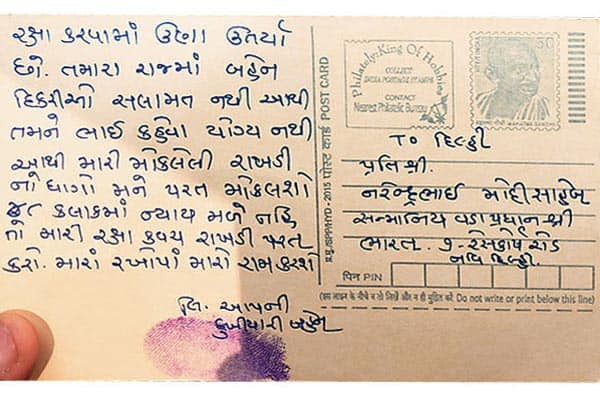 રક્ષા કરવામાં ઉણા ઉતર્યા
છળે. તમારા રાજમાં બહેન
દિકરીઓ સલામત નથી આથી
તમને ભાઈ કહેવા યોગ્ય નથી
આથી મારી મોકલેલી રાખડી
નો ધાગો મને પરત મોકલશો
૪૮ કલાકમાં ન્યાય મળે નહિ
તો મારી રક્ષા કવચ રાખડી પરત
કરો. મારાં રખોપાં મારો રામ કરશે
લિ. આપની
દુખીયારી બહેન
Philately: King Of Hobbies
COLLECT
INDIA POSTAGE STAMPS
CONTACT
Nearest Philatelic Bureau
भारत INDIA
50
महात्मा गांधी MAHATMA GANDHI
पोस्ट कार्ड POST CARD
ISPP/HYD - 2015
TO દિલ્હી
પ્રતિશ્રી.
નરેન્દ્રભાઈ મોદી સાહેબ
સન્માનિય વડાપ્રધાન શ્રી
ભારત. ૭-રેસકોર્ષ રોડ
નવિ દિલ્હી.
पिन PIN
(इस लाइन के नीचे न तो लिखें और न ही मुद्रित करें Do not write or print below this line)